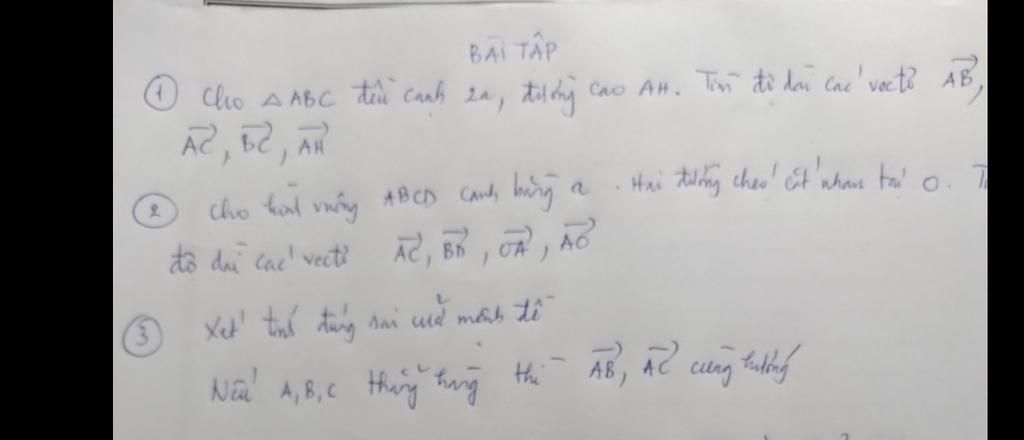 BÀI TẬP
① Cho △ABC đều cạnh 2a, đường cao AH. Tìm độ dài các vectơ AB,
AC, BC, AH
② Cho hình vuông ABCD cạnh bằng a. Hai đường chéo cắt nhau tại O.
độ dài các vectơ AC, BD, OA, AO
③ Xét tính đúng sai của mệnh đề
Nếu A, B, C thẳng hàng thì AB, AC cùng hướng